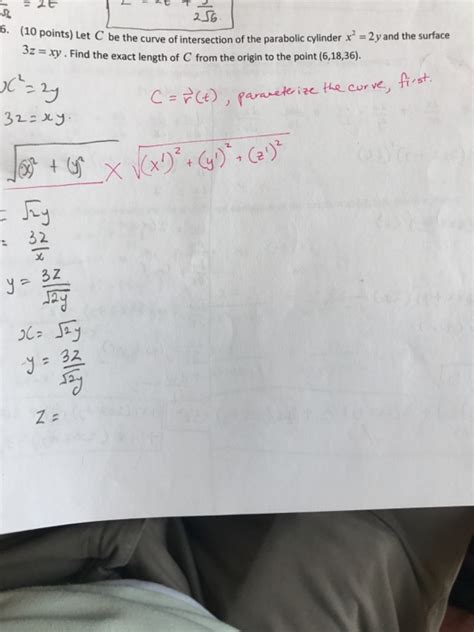 = 2t
2√6.
6. (10 points) Let C be the curve of intersection of the parabolic cylinder x² = 2y and the surface
3z = xy . Find the exact length of C from the origin to the point (6,18,36).
x² = 2y
C = r⃗(t) , parameterize the curve, first.
3z = xy.
√(x)² + (y)² X √(x')² + (y')² + (z')²
= √2y
= 3z/x
y = 3z/√2y
x = √2y
y = 3z/√2y
z =